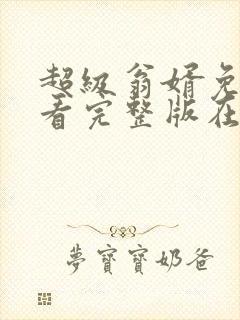 超级翁婿免
看完整版在
梦寶寶奶爸